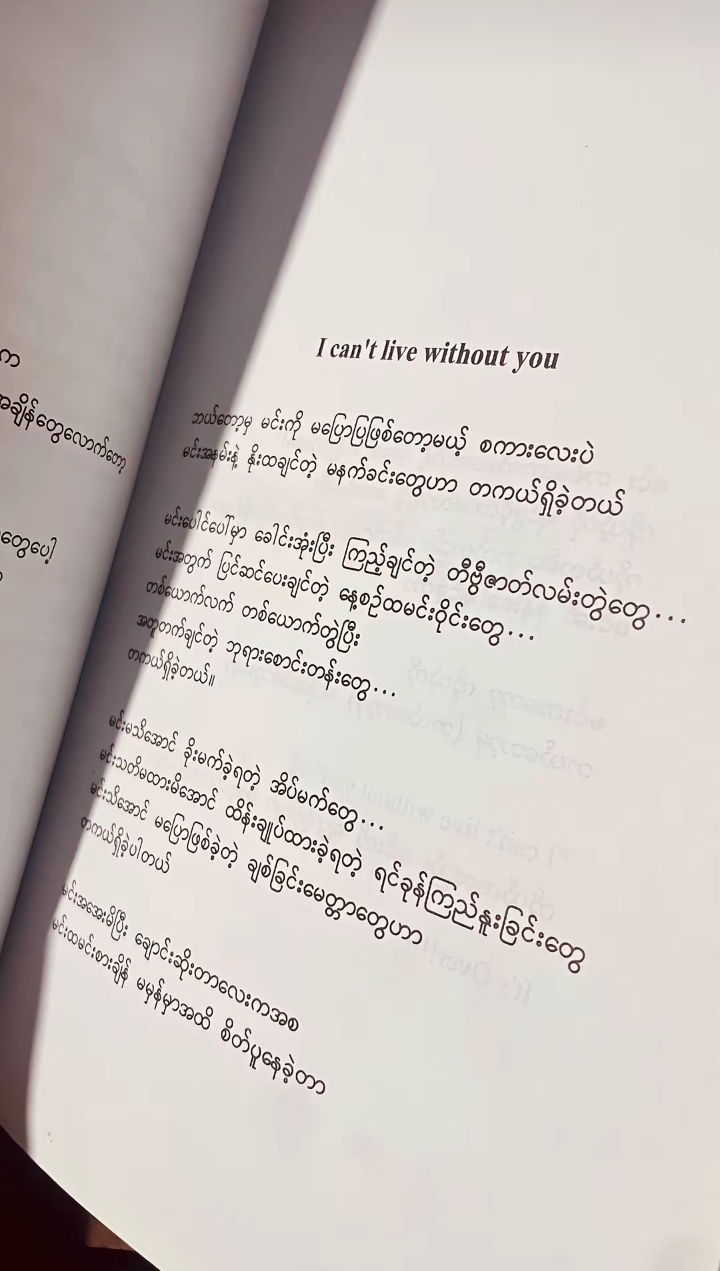 က
အချိန်တွေလောက်တော့
တွေပေါ့
I can't live without you
ဘယ်တော့မှ မင်းကို မပြောပြဖြစ်တော့မယ့် စကားလေးပဲ
မင်းအနမ်းနဲ့ နိုးထချင်တဲ့ မနက်ခင်းတွေဟာ တကယ်ရှိခဲ့တယ်
မင်းပေါင်ပေါ်မှာ ခေါင်းအုံးပြီး ကြည့်ချင်တဲ့ တီဗွီဇာတ်လမ်းတွဲတွေ...
မင်းအတွက် ပြင်ဆင်ပေးချင်တဲ့ နေ့စဉ်ထမင်းဝိုင်းတွေ...
တစ်ယောက်လက် တစ်ယောက်တွဲပြီး
အတူတက်ချင်တဲ့ ဘုရားစောင်းတန်းတွေ...
တကယ်ရှိခဲ့တယ်။
မင်းမသိအောင် ခိုးမက်ခဲ့ရတဲ့ အိပ်မက်တွေ...
မင်းသတိမထားမိအောင် ထိန်းချုပ်ထားခဲ့ရတဲ့ ရင်ခုန်ကြည်နူးခြင်းတွေ
မင်းသိအောင် မပြောဖြစ်ခဲ့တဲ့ ချစ်ခြင်းမေတ္တာတွေဟာ
တကယ်ရှိခဲ့ပါတယ်
မင်းအအေးမိပြီး ချောင်းဆိုးတာလေးကအစ
မင်းထမင်းစားချိန် မမှန်မှာအထိ စိတ်ပူနေခဲ့တာ